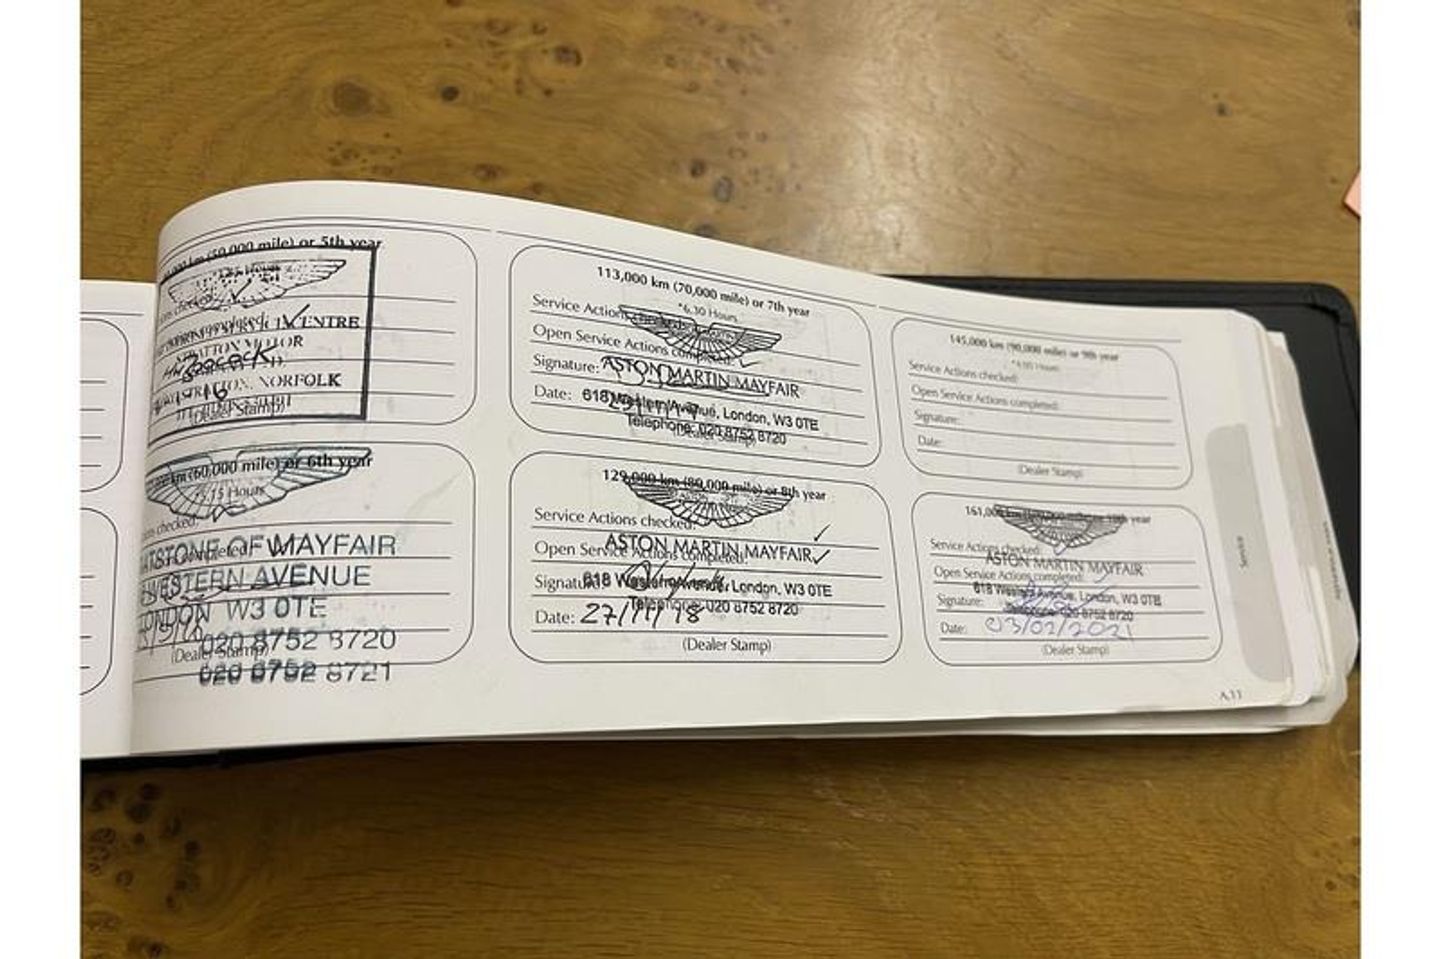 (50,000 mile) or 5th year
CENTRE
STRATTON MOTOR
STRATTON, NORFOLK
(Dealer Stamp)
km (60,000 mile) or 6th year
*5.15 Hours
OF MAYFAIR
WESTERN AVENUE
LONDON W3 0TE
020 8752 8720
(Dealer Stamp)
020 8752 8721
113,000 km (70,000 mile) or 7th year
*6.30 Hours
Service Actions checked:
Open Service Actions completed:
Signature: ASTON MARTIN MAYFAIR
Date: 618 Western Avenue, London, W3 0TE
Telephone: 020 8752 8720
(Dealer Stamp)
129,000 km (80,000 mile) or 8th year
Service Actions checked:
ASTON MARTIN MAYFAIR
Open Service Actions completed:
Signature: 618 Western Avenue, London, W3 0TE
Telephone: 020 8752 8720
Date: 27/11/18
(Dealer Stamp)
145,000 km (90,000 mile) or 9th year
Service Actions checked:
Open Service Actions completed:
Signature:
Date:
(Dealer Stamp)
161,000 km (100,000 mile) or 10th year
Service Actions checked:
ASTON MARTIN MAYFAIR
Open Service Actions completed:
618 Western Avenue, London, W3 0TE
Signature: Telephone: 020 8752 8720
Date: 03/02/2021
(Dealer Stamp)
Service
A.11